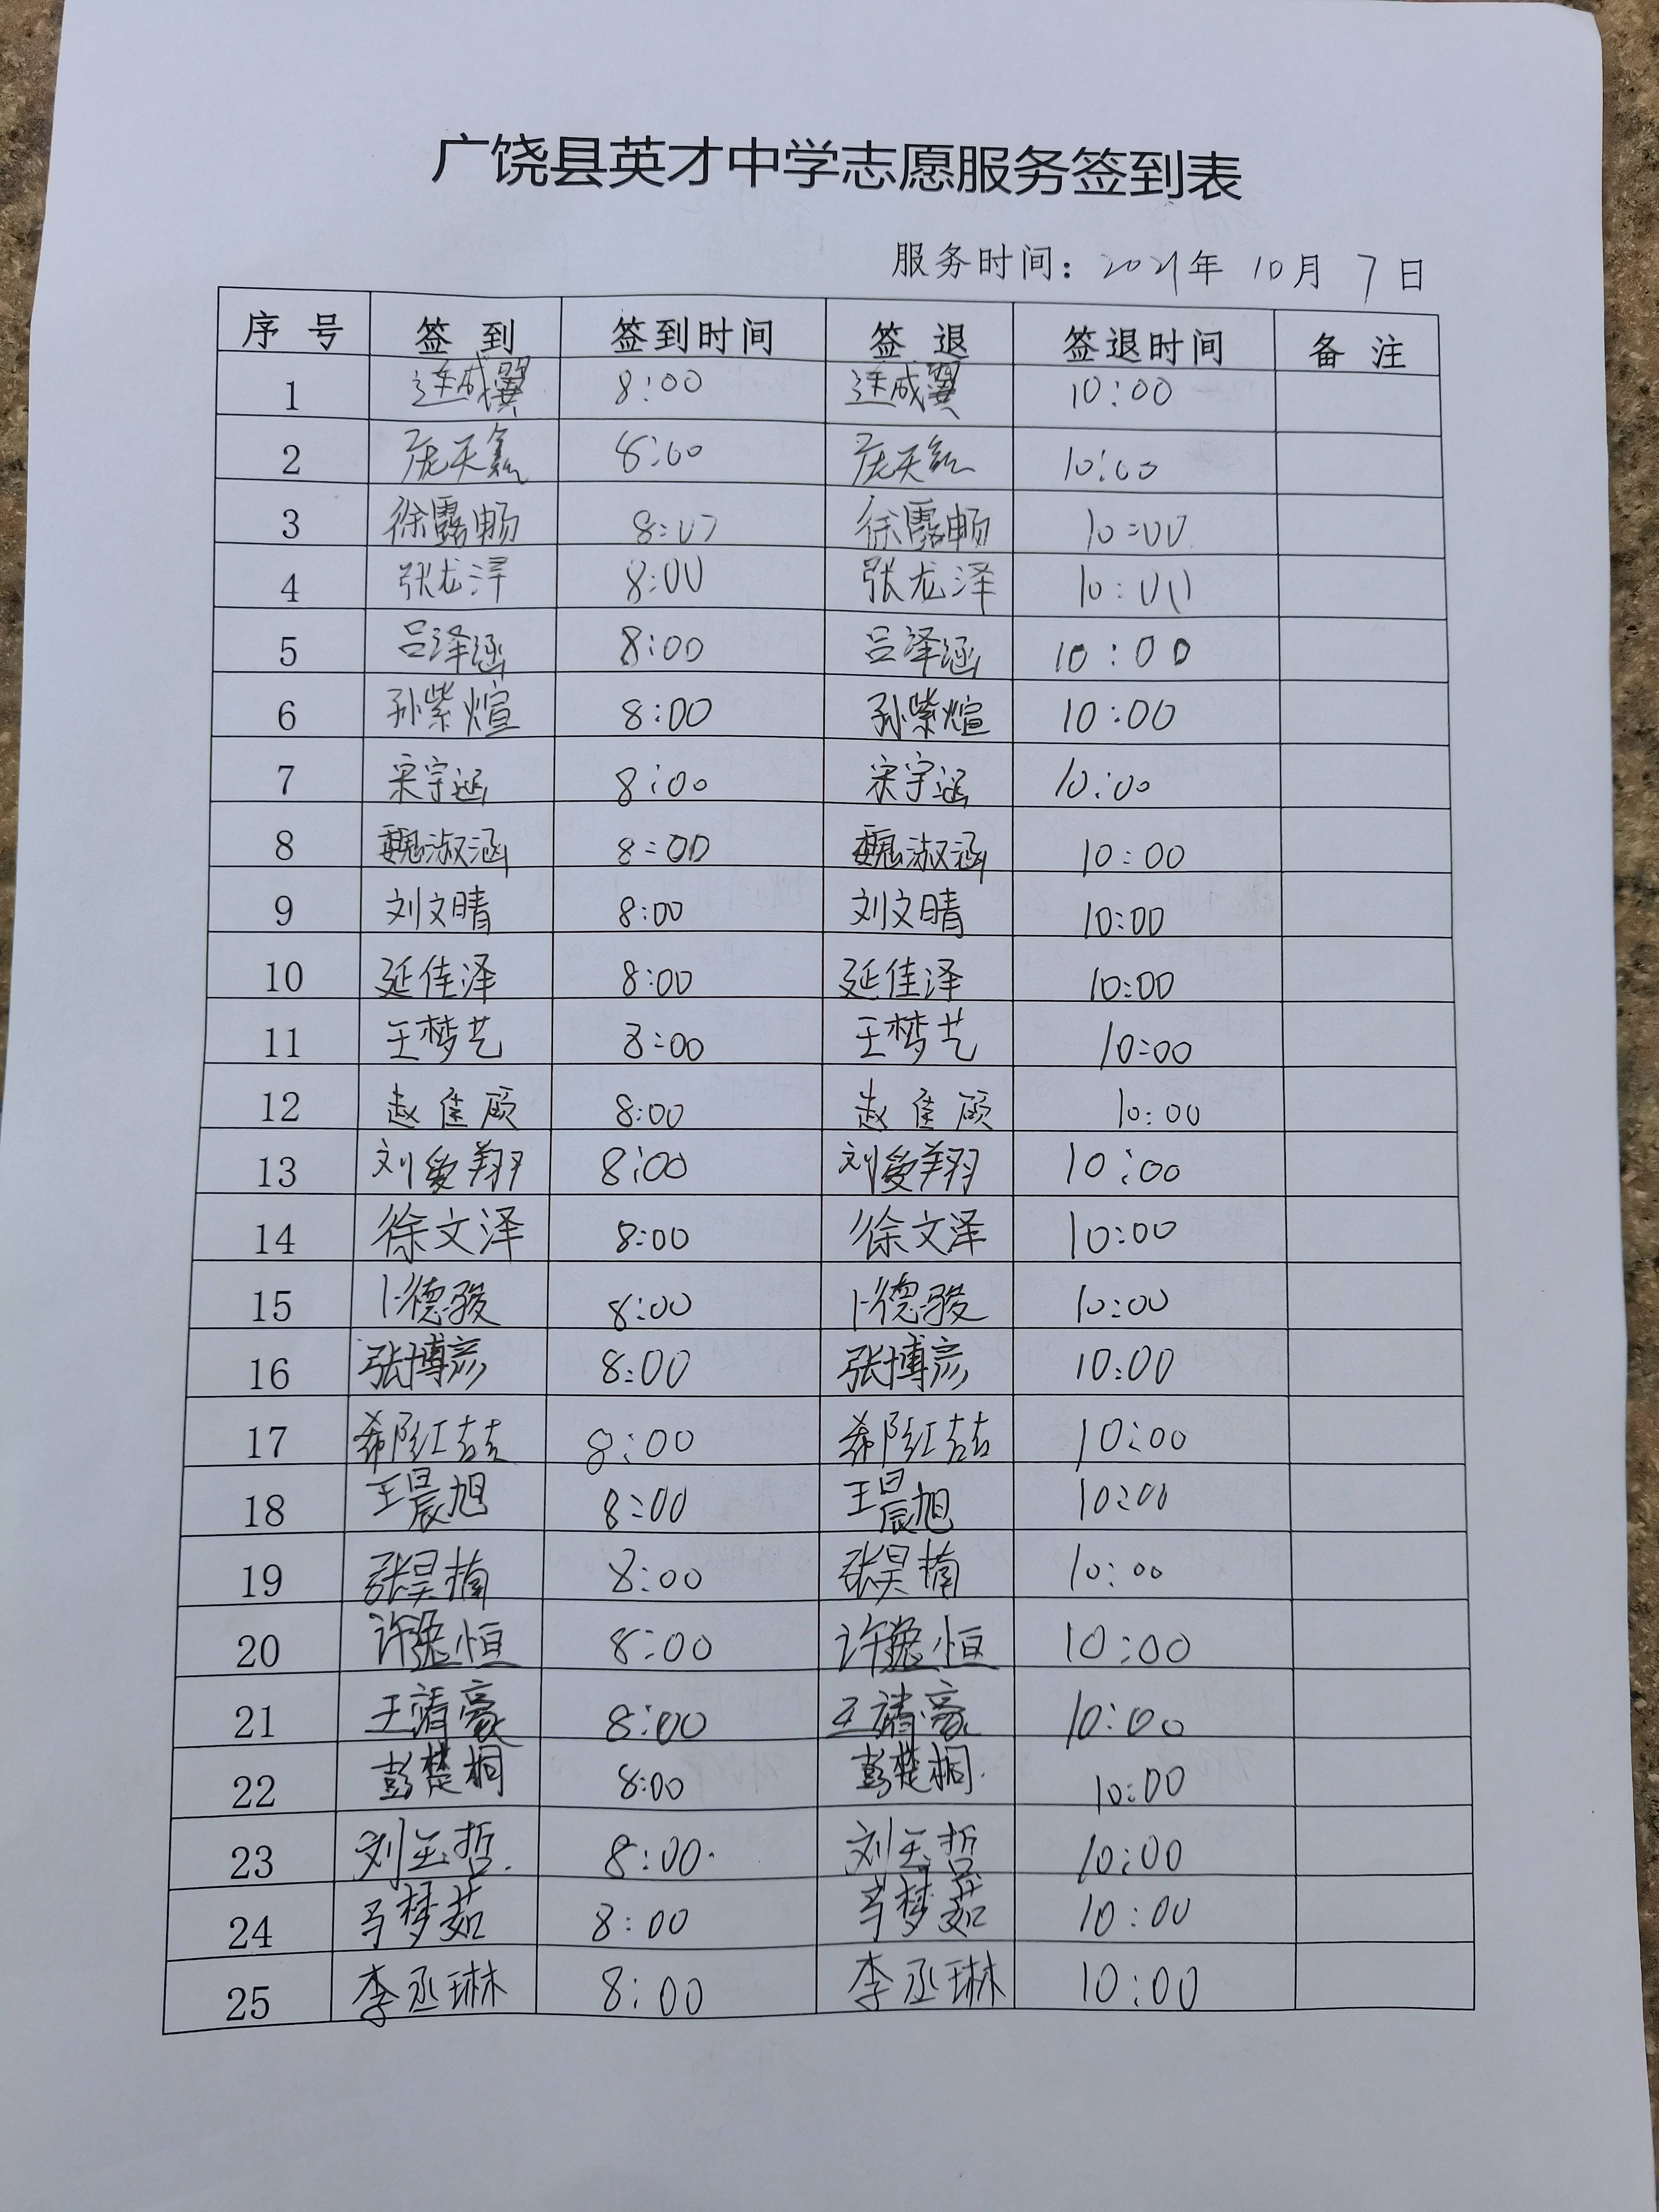 广饶县英才中学志愿服务签到表
服务时间：2021年 10月 7日
序号 签到 签到时间 签退 签退时间 备注
1 连成翼 8:00 连成翼 10:00
2 庞天鑫 8:00 庞天鑫 10:00
3 徐露畅 8:00 徐露畅 10:00
4 张龙泽 8:00 张龙泽 10:00
5 吕泽涵 8:00 吕泽涵 10:00
6 孙紫煊 8:00 孙紫煊 10:00
7 宋宇涵 8:00 宋宇涵 10:00
8 魏淑涵 8:00 魏淑涵 10:00
9 刘文晴 8:00 刘文晴 10:00
10 延佳泽 8:00 延佳泽 10:00
11 王梦艺 8:00 王梦艺 10:00
12 赵佳硕 8:00 赵佳硕 10:00
13 刘爱翔 8:00 刘爱翔 10:00
14 徐文泽 8:00 徐文泽 10:00
15 卜德骏 8:00 卜德骏 10:00
16 张博彦 8:00 张博彦 10:00
17 8:00 10:00
18 王晨旭 8:00 王晨旭 10:00
19 张昊楠 8:00 张昊楠 10:00
20 许恒 8:00 许恒 10:00
21 王靖豪 8:00 王靖豪 10:00
22 彭楚桐 8:00 彭楚桐 10:00
23 刘玉哲 8:00 刘玉哲 10:00
24 梦茹 8:00 梦茹 10:00
25 李丞琳 8:00 李丞琳 10:00